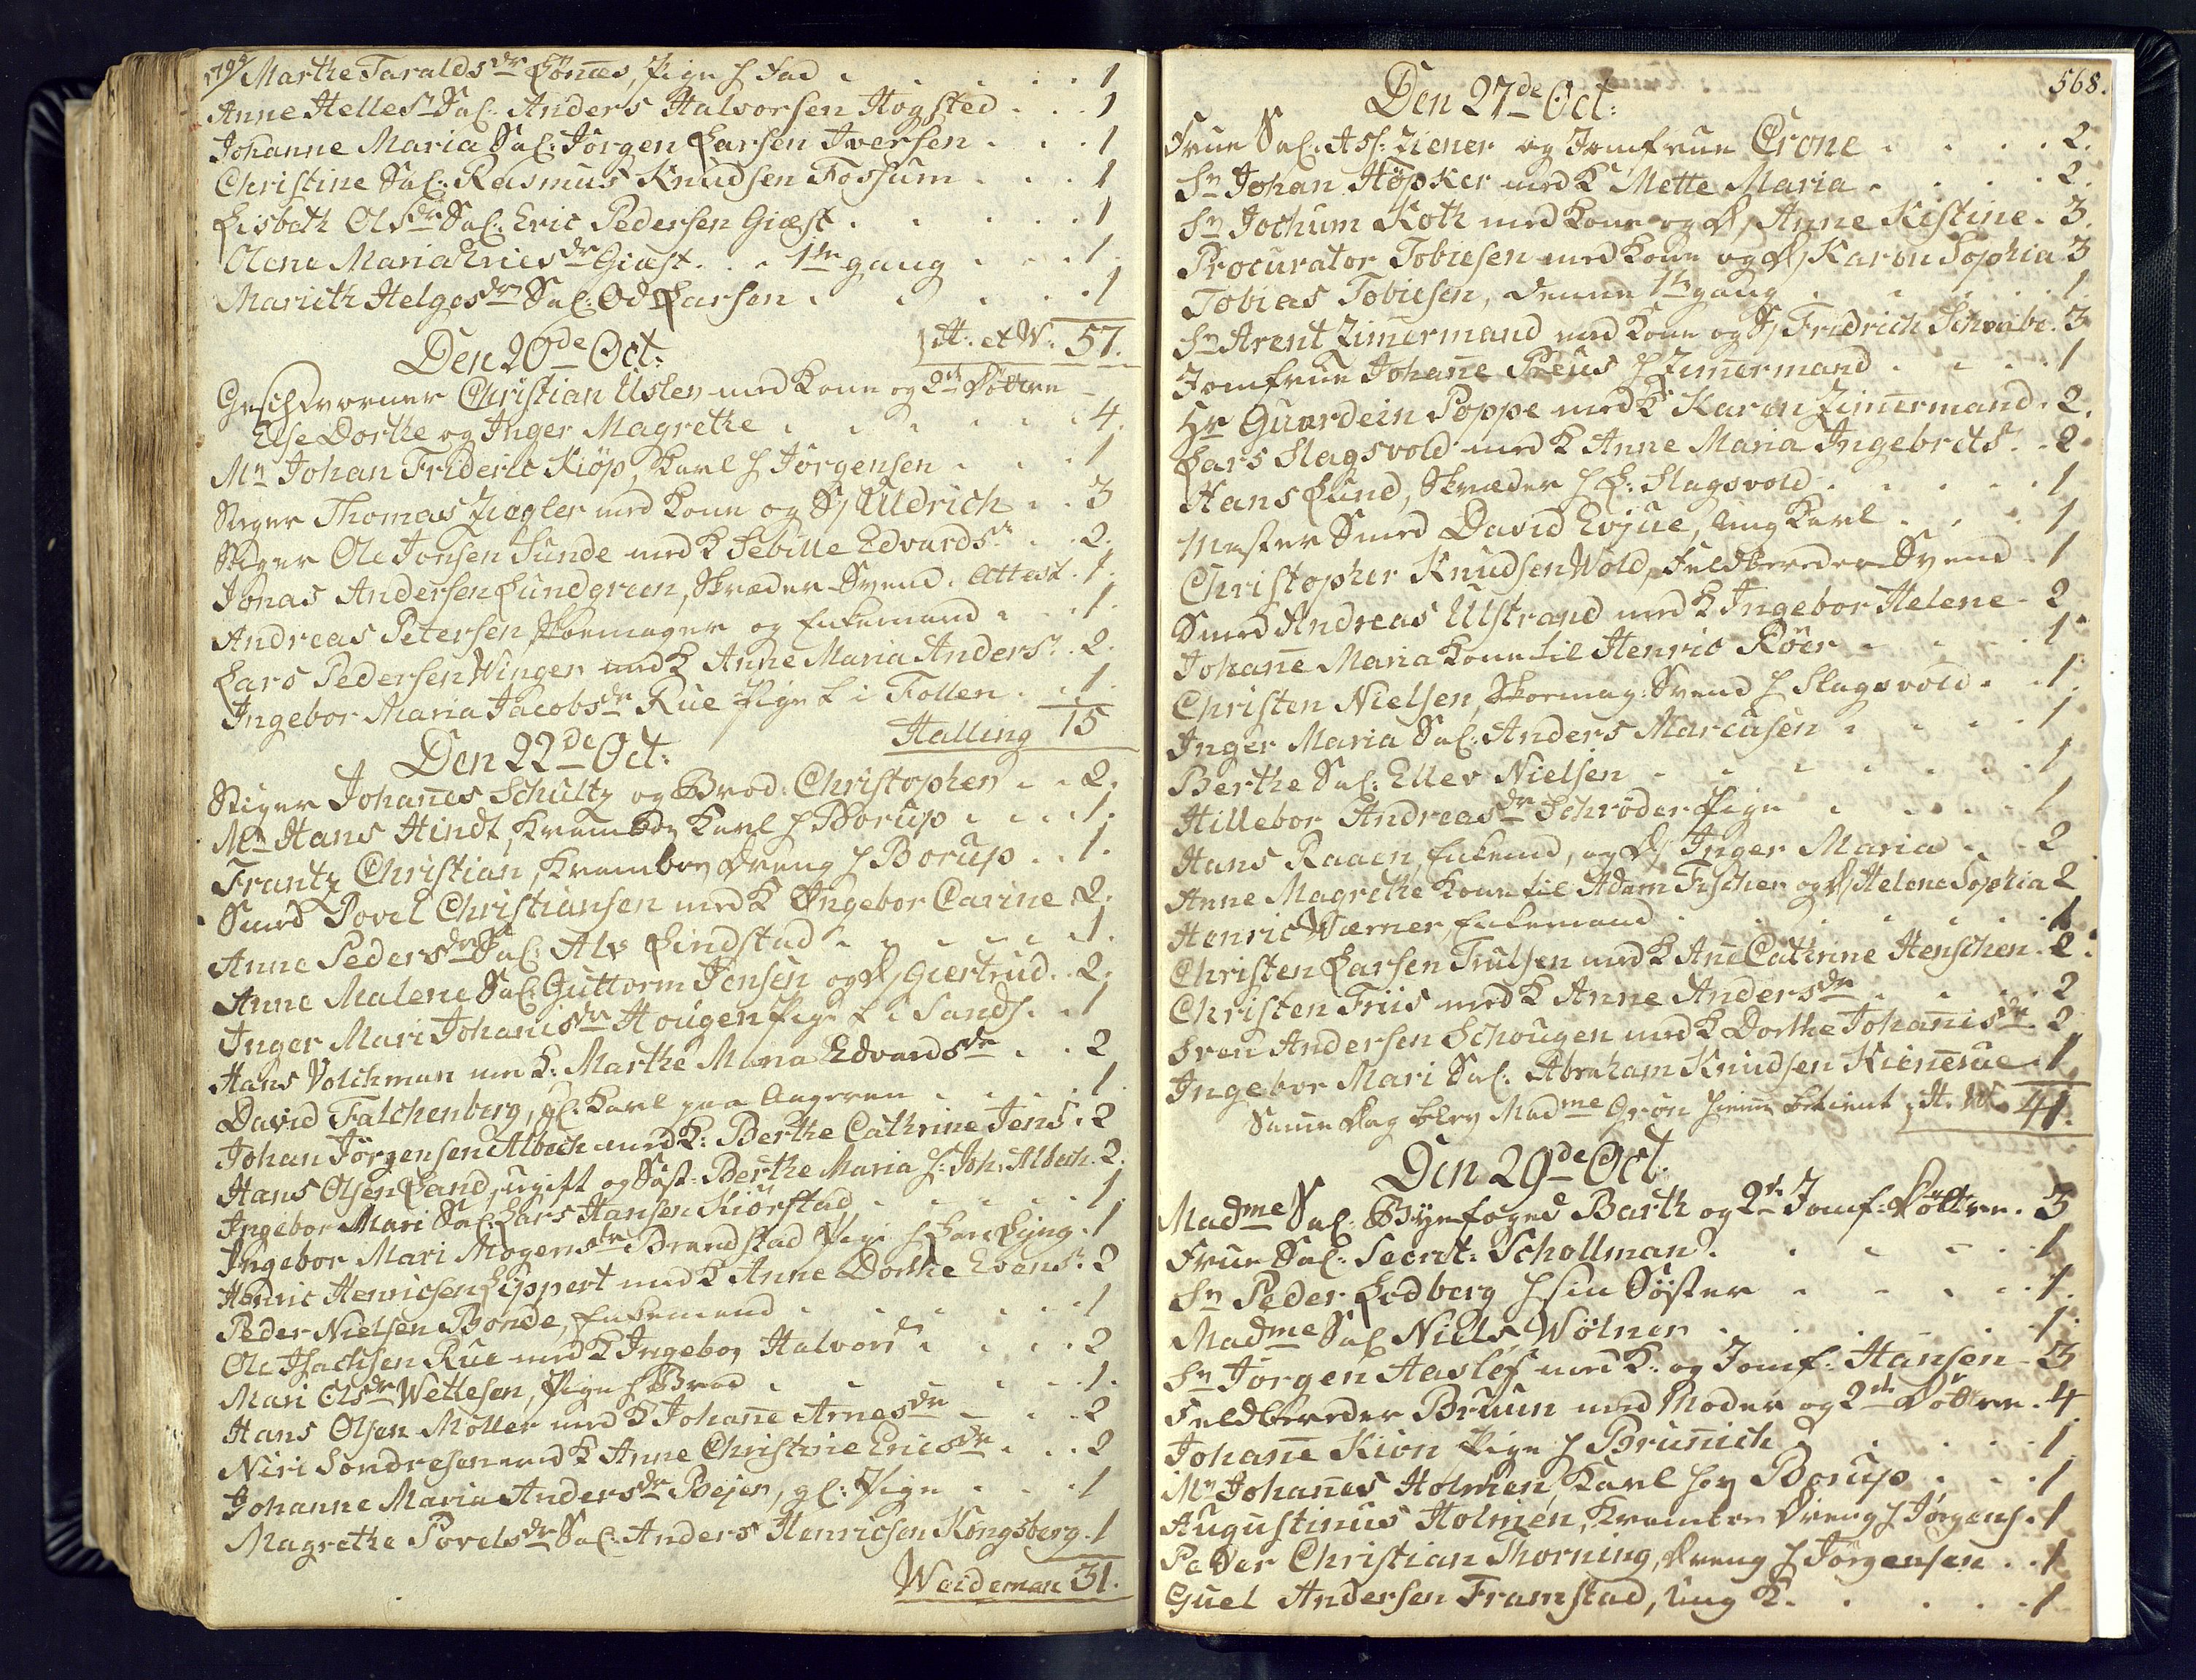 Marthe Taraldsdr Lønnes, Pige h Fad . 1
Anne Hellesdr Sal: Anders Halvorsen Hogsted . . . 1
Johanne Maria Sal: Jørgen Larsen Iversen . . . 1
Christine Sal: Rasmus Knudsen Fossum . . . 1
Lisbeth Olsdr Sal: Eric Pedersen Giæst . . . 1
Olene Maria Ericsdr Giæst . . 1te gang . . . 1
Marith Helgesdr Sal: Od Larsen . . . 1
H: et W: 57.
Den 20de Oct:
Geschworner Christian Usler med Kone og 2de Døttre
Else Dorthe og Inger Magrethe . . . 4.
Mr Johan Frideric Kiöp, Karl h Jørgensen . . . 1
Stiger Thomas Ziegler med Kone og S/ Uldrich . . 3
Stiger Ole Jonsen Sunde med K Sebille Edvardsdr . . 2.
Jonas Andersen Lundgreen, Skræder Svend. Attest . 1.
Andreas Petersen, Skoemager og Enkemand . . . 1.
Lars Pedersen Winger med K Anne Maria Andersdr . 2.
Ingebor Maria Jacobsdr Rue Pige t i Follen . . 1.
Halling 15
Den 22de Oct:
Stiger Johannes Schultz og Brod: Christopher . . 2.
Mr Hans Hindt, Kramboe Karl h Borup . . . 1.
Frantz Christian, Kramboe Dreng h Borup . . 1.
Smed Povel Christiansen med K Ingebor Carine 2.
Anne Pedersdr Sal: Alv Lindstad . . . 1.
Anne Malene Sal: Guttorm Jensen og D/ Giertrud . . 2.
Inger Mari Johannisdr Hougen Pige t i Sands . . 1
Hans Volchman med K: Marthe Maria Edvardsdr . . 2
David Falchenberg, gl: Karl paa Aageren . . . 1
Johan Jørgensen Albech med K: Berthe Cathrine Jensdr . 2
Hans Olsen Land, ugift og Søst: Berthe Maria h: Joh: Albech . 2.
Ingebor Mari Sal: Lars Hansen Kiörstad . . . 1
Ingebor Mari Mogensdr Brandstad Pige h Lars Lyng . 1
Henric Henricsen Lippert med K Anne Dorthe Evensdr . 2
Peder Nielsen Bonde, Enkemand . . . 1
Ole Isachsen Rue med K Ingebor Halvorsdr . . . 2
Mari Olsdr Wettesen, Pige h Brod . . . 1.
Hans Olsen Møller med K Johanne Arnesdr . . 2
Niri Sondresen med K Anne Christine Ericsdr . . . 2
Johanne Maria Andersdr Bejer, gl: Pige . . . 1
Magrethe Povelsdr Sal: Anders Henricsen Kongsberg . 1
Weideman 31.
568.
Den 27de Oct:
Frue Sal: Ass: Ziener og Jomfrue Crone . . . . 2.
Sr Johan Höpker med K Mette Maria . . . 2.
Sr Jochum Koth med Kone og D/ Anne Kistine . 3.
Procurator Tobiesen med Kone og D/ Karen Sophia 3
Tobias Tobiesen, denne 1te gang . . . 1.
Sr Arent Zimermand med Kone og S/ Fridrich Schvabe . 3
Jomfrue Johanne Preus h Zimermand . . . 1
Hr Guardein Poppe med K Karen Zimermand . 2.
Lars Slagsvold med K Anne Maria Ingebretsdr . . 2.
Hans Lund, Skræder h L: Slagsvold . . . 1
Mester Smed David Evjue, Ung Karl . . . 1
Christopher Knudsen Wold, Feldbereder Svend . 1
Smed Andreas Ulstrand med K Ingebor Helene . 2
Johanne Maria Kone til Henric Röer . . . 1.
Christen Nielsen, Skoemag: Svend h Slagsvold . . 1.
Inger Maria Sal: Anders Marcusen . . . 1
Berthe Sal: Ellev Nielsen . . . 1
Hillebor Andreasdr Schrøder Pige . . . 1
Hans Raaen, Enkemd, og D/ Inger Maria . . 2
Anne Magrethe Kone til Adam Fischer og D/ Helene Sophia 2
Henric Wærner, Enkemand . . . 1
Christen Larsen Trulsen med K Anne Cathrine Henschen . 2.
Christen Friis med K Anne Andersdr . . . 2
Sven Andersen Schougen med K Dorthe Johannisdr . 2
Ingebor Mari Sal: Abraham Knudsen Kienerue . 1
Samme Dag blev Madme Grøn hieme betient, H. W. 41.
Den 29de Oct.
Madme Sal: Byefoged Barth og 2de Jomf: Døttre . 3
Frue Sal: Secret: Schollman . . . 1
Sr Peder Ledberg h sin Söster . . . 1.
Madme Sal: Niels Wölner . . . 1.
Sr Jørgen Aasløf med K: og Jomf: Hansen . 3
Feldbereder Bruun med Moder og 2de Døttre . 4
Johanne Kiön Pige h Brunich . . . 1
Mr Johannes Holmen, Karl hos Borup . . . 1
Augustinus Holmen, Kramboe Dreng h Jørgens . 1
Peder Christian Thorning, Dreng h Jørgensen . . 1
Guel Andersen Framstad, Ung K . . . 1